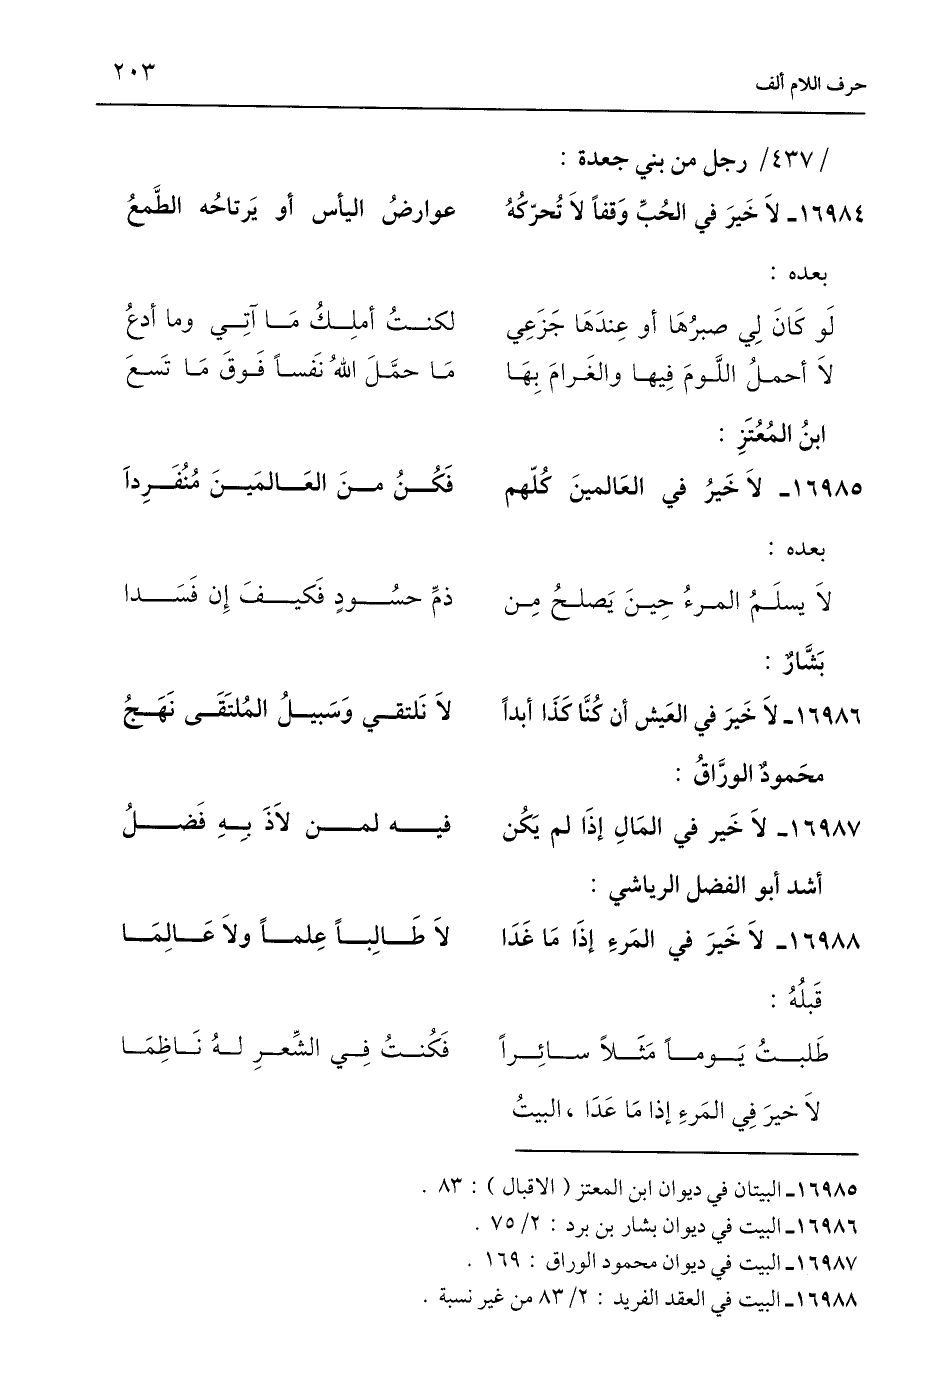 حرف اللام ألف ٢٠٣
/٤٣٧/ رجل من بني جعدة :
١٦٩٨٤ـ لاَ خَيرَ في الحُبِّ وَقفاً لاَ تُحرّكهُ عوارضُ اليأس أو يَرتاحُه الطَّمعُ
بعده :
لَو كَانَ لِي صبرُهَا أو عِندَهَا جَزَعِي لكنتُ أملِكُ مَا آتِي وما أدعُ
لاَ أحملُ اللَّومَ فِيها والغَرامَ بِهَا مَا حمَّلَ اللهُ نَفساً فَوقَ مَا تَسعَ
ابنُ المُعتَزِ :
١٦٩٨٥ـ لاَ خَيرُ في العَالمينَ كُلّهم فَكُنُ منَ العَالمَينَ مُنُفَرِداَ
بعده :
لاَ يسلَمُ المرءُ حِينَ يَصلحُ مِن ذمِّ حسُودٍ فَكيفَ إِن فَسَدا
بَشَّارٌ :
١٦٩٨٦ـ لاَ خَيرَ في العَيش أن كُنَّا كَذَا أبداً لاَ نَلتقي وَسَبيلُ المُلتَقَى نَهَجُ
محَمودٌ الورَّاقُ :
١٦٩٨٧ـ لاَ خَير في المَالِ إذَا لم يَكُن فيه لمن لاَذَ بِهِ فَضلُ
أشد أبو الفضل الرياشي :
١٦٩٨٨ـ لاَ خَيرَ في المَرءِ إذَا مَا غَدَا لاَ طَالِباً عِلماً ولاَ عَالِمَا
قَبلُهُ :
طَلبتُ يَوماً مَثَلاً سائِراً فَكُنتُ فِي الشِّعرِ لهُ نَاظِمَا
لاَ خيرَ فِي المَرءِ إذا مَا عَدَا ، البيتُ
١٦٩٨٥ـ البيتان في ديوان ابن المعتز ( الاقبال ) : ٨٣ .
١٦٩٨٦ـ البيت في ديوان بشار بن برد : ٢/ ٧٥ .
١٦٩٨٧ـ البيت في ديوان محمود الوراق : ١٦٩ .
١٦٩٨٨ـ البيت في العقد الفريد : ٢/ ٨٣ من غير نسبة .